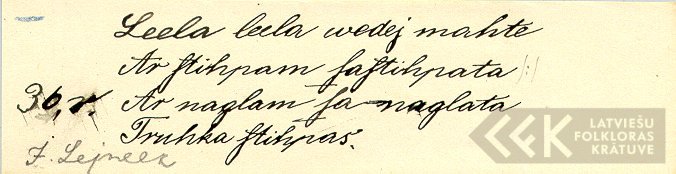 Leela leela wedej mahte
Ar stihpam sastihpata /:/
36, r. Ar naglam sa-naglata
Truhka stihpas.
J. Lejneek
LATVIEŠU
FOLKLORAS
KRĀTUVE